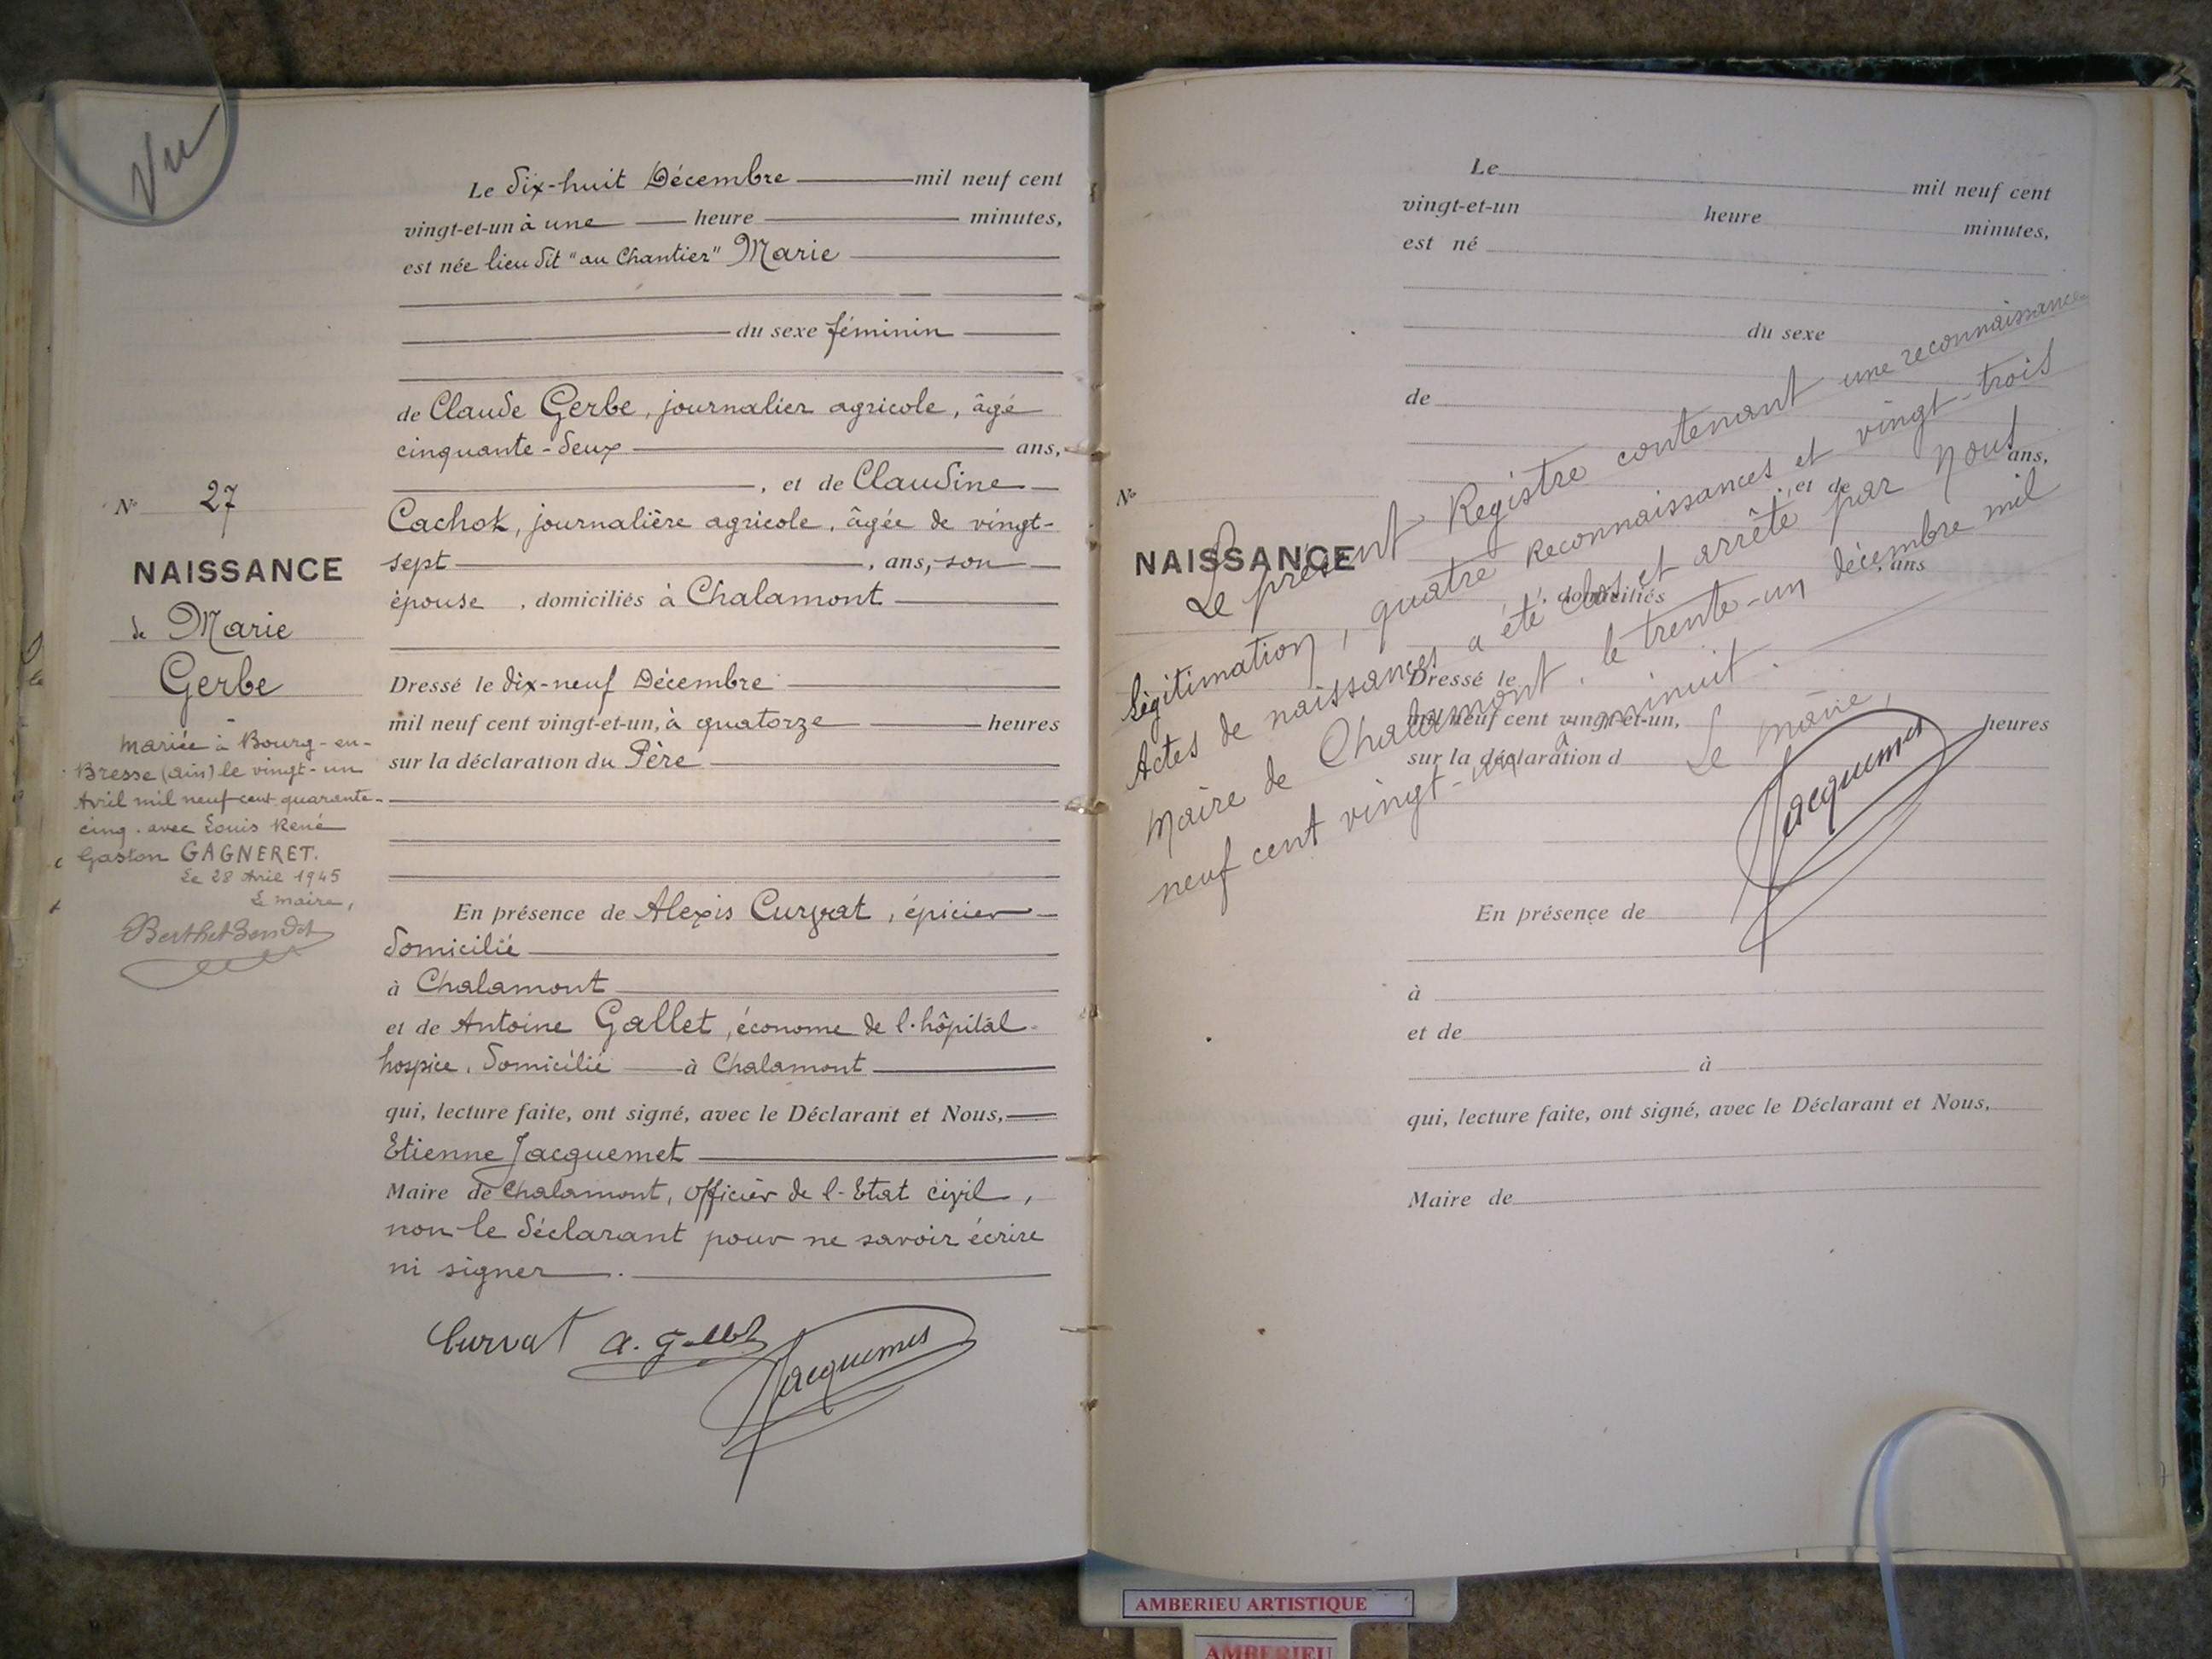 Vu
Le dix-huit Décembre mil neuf cent
vingt-et-un à une heure minutes,
est née lieu dit "au Chantier" Marie
du sexe féminin
de Claude Gerbe, journalier agricole, âgé
cinquante-deux ans,
, et de Claudine
Cachot, journalière agricole, âgée de vingt-
sept , ans, son
épouse , domiciliés à Chalamont
Dressé le dix-neuf Décembre
mil neuf cent vingt-et-un, à quatorze heures
sur la déclaration du Père
En présence de Alexis Curvat, épicier
domicilié
à Chalamont
et de Antoine Gallet, économe de l'hôpital-
hospice, domicilié à Chalamont
qui, lecture faite, ont signé, avec le Déclarant et Nous,
Etienne Jacquemet
Maire de Chalamont, officier de l'Etat civil,
non le déclarant pour ne savoir écrire
ni signer.
Curvat A. Gallet
Jacquemet
N° 27
NAISSANCE
de Marie
Gerbe
mariée à Bourg-en-
Bresse (Ain) le vingt-un
Avril mil neuf cent quarante-
cinq. avec Louis René
Gaston GAGNERET.
Le 28 Avril 1945
Le maire,
Le mil neuf cent
vingt-et-un heure minutes,
est né
du sexe
de
ans,
, et de
, ans
, domiciliés
Dressé le
mil neuf cent vingt-et-un, heures
sur la déclaration d
En présence de
à
et de
à
qui, lecture faite, ont signé, avec le Déclarant et Nous,
Maire de
N°
NAISSANCE
Le présent Registre contenant une reconnaissance
légitimation, quatre reconnaissances et vingt-trois
Actes de naissances a été clos et arrêté par Nous
Maire de Chalamont, le trente-un décembre mil
neuf cent vingt-un à minuit.
Le Maire,
Jacquemet
AMBERIEU ARTISTIQUE
AMBERIEU